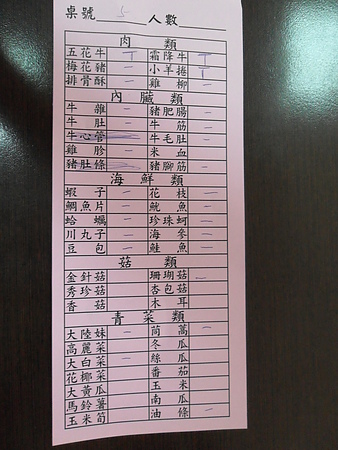 桌號 5 人數
肉 類
五花牛 丅 霜降牛 丅
梅花豬 小羊捲 丅
排骨酥 一 雞柳 一
內 臟 類
牛雜 一 豬肥腸 一
牛肚 一 牛筋 一
牛心管 牛毛肚 一
雞胗 一 米血
豬肚條 豬腳筋 一
海 鮮 類
蝦子 一 花枝 一
鯛魚片 一 魷魚 一
蛤蠣 一 珍珠蚵 一
川丸子 一 海參 一
豆包 一 鮭魚 一
菇 類
金針菇 珊瑚菇 一
秀珍菇 杏包菇
香菇 木耳
青 菜 類
大陸妹 一 茼萵 一
高麗菜 冬瓜
大白菜 一 絲瓜
花椰菜 番茄
大黃瓜 玉米
馬鈴薯 南瓜
玉米筍 油條 一